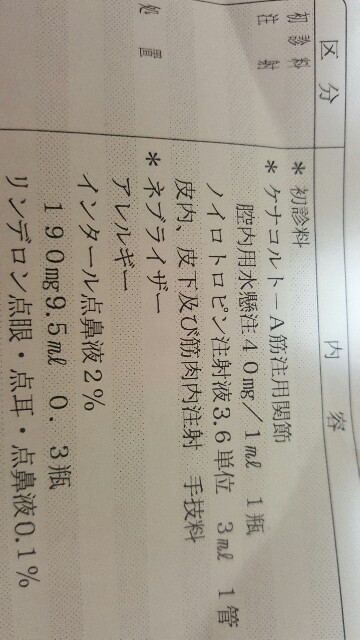 区分 内容
初診料 * 初診料
注射 * ケナコルト－A筋注用関節
腔内用水懸注40mg／1㎖ 1瓶
ノイロトロピン注射液3.6単位 3㎖ 1管
皮内、皮下及び筋肉内注射 手技料
処置 * ネブライザー
アレルギー
インタール点鼻液2%
190mg9.5㎖ 0.3瓶
リンデロン点眼・点耳・点鼻液0.1%